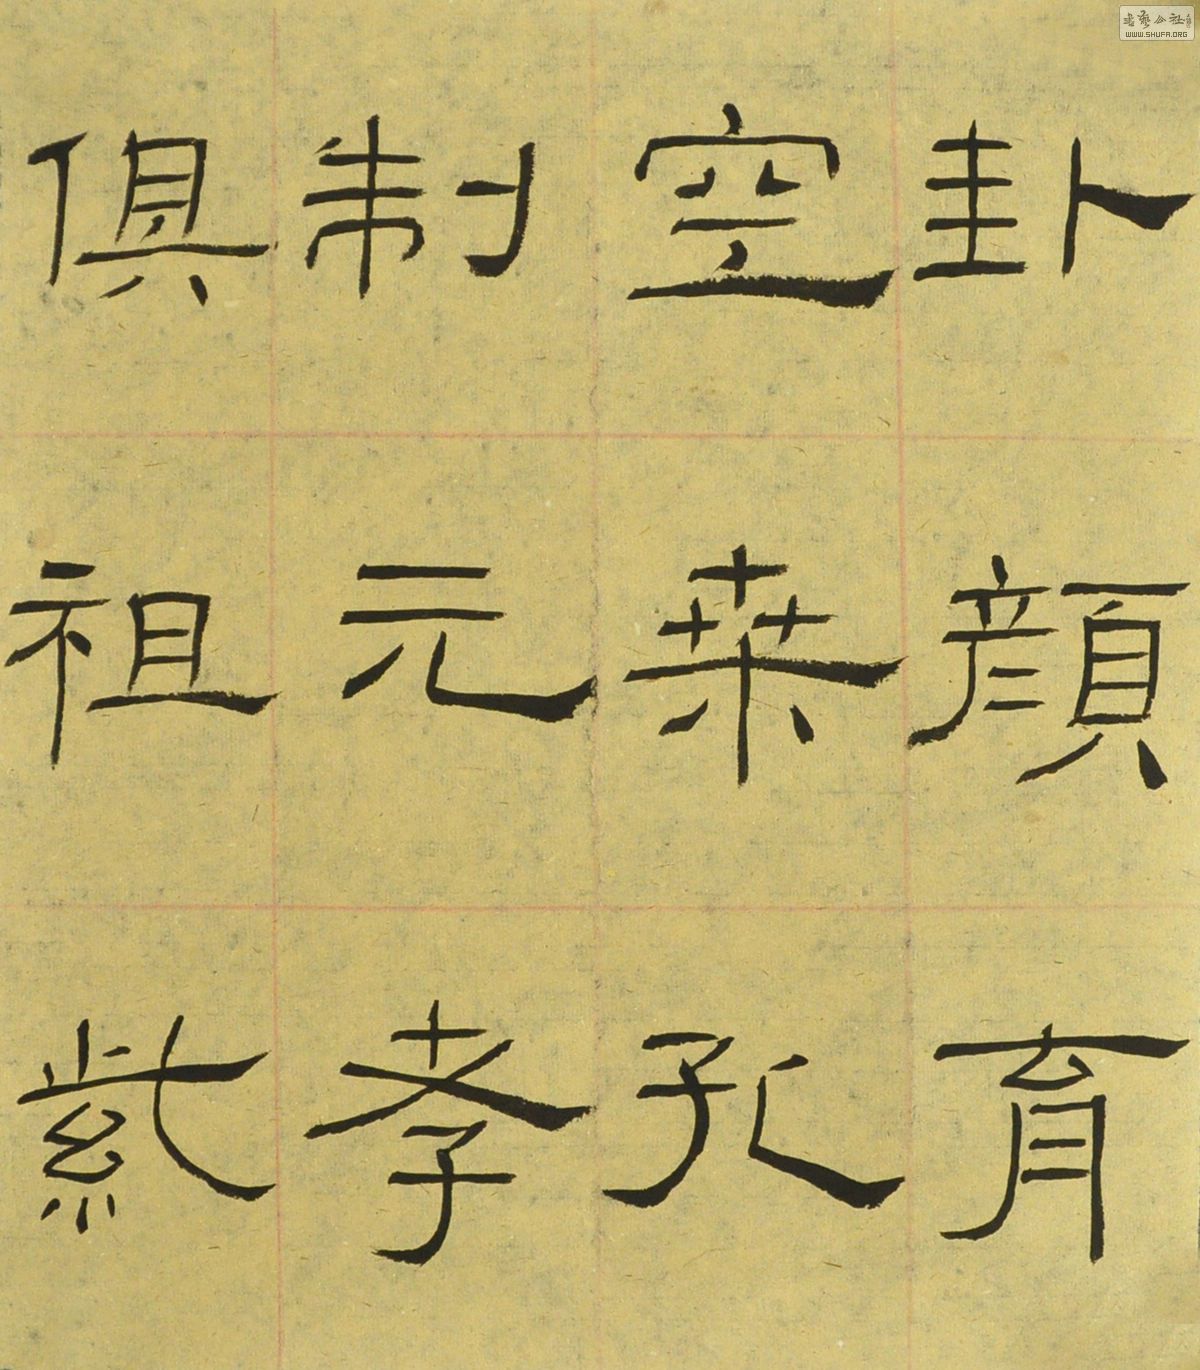 卦顏育
空桒孔
制元孝
俱祖紫
書藝公社
WWW.SHUFA.ORG